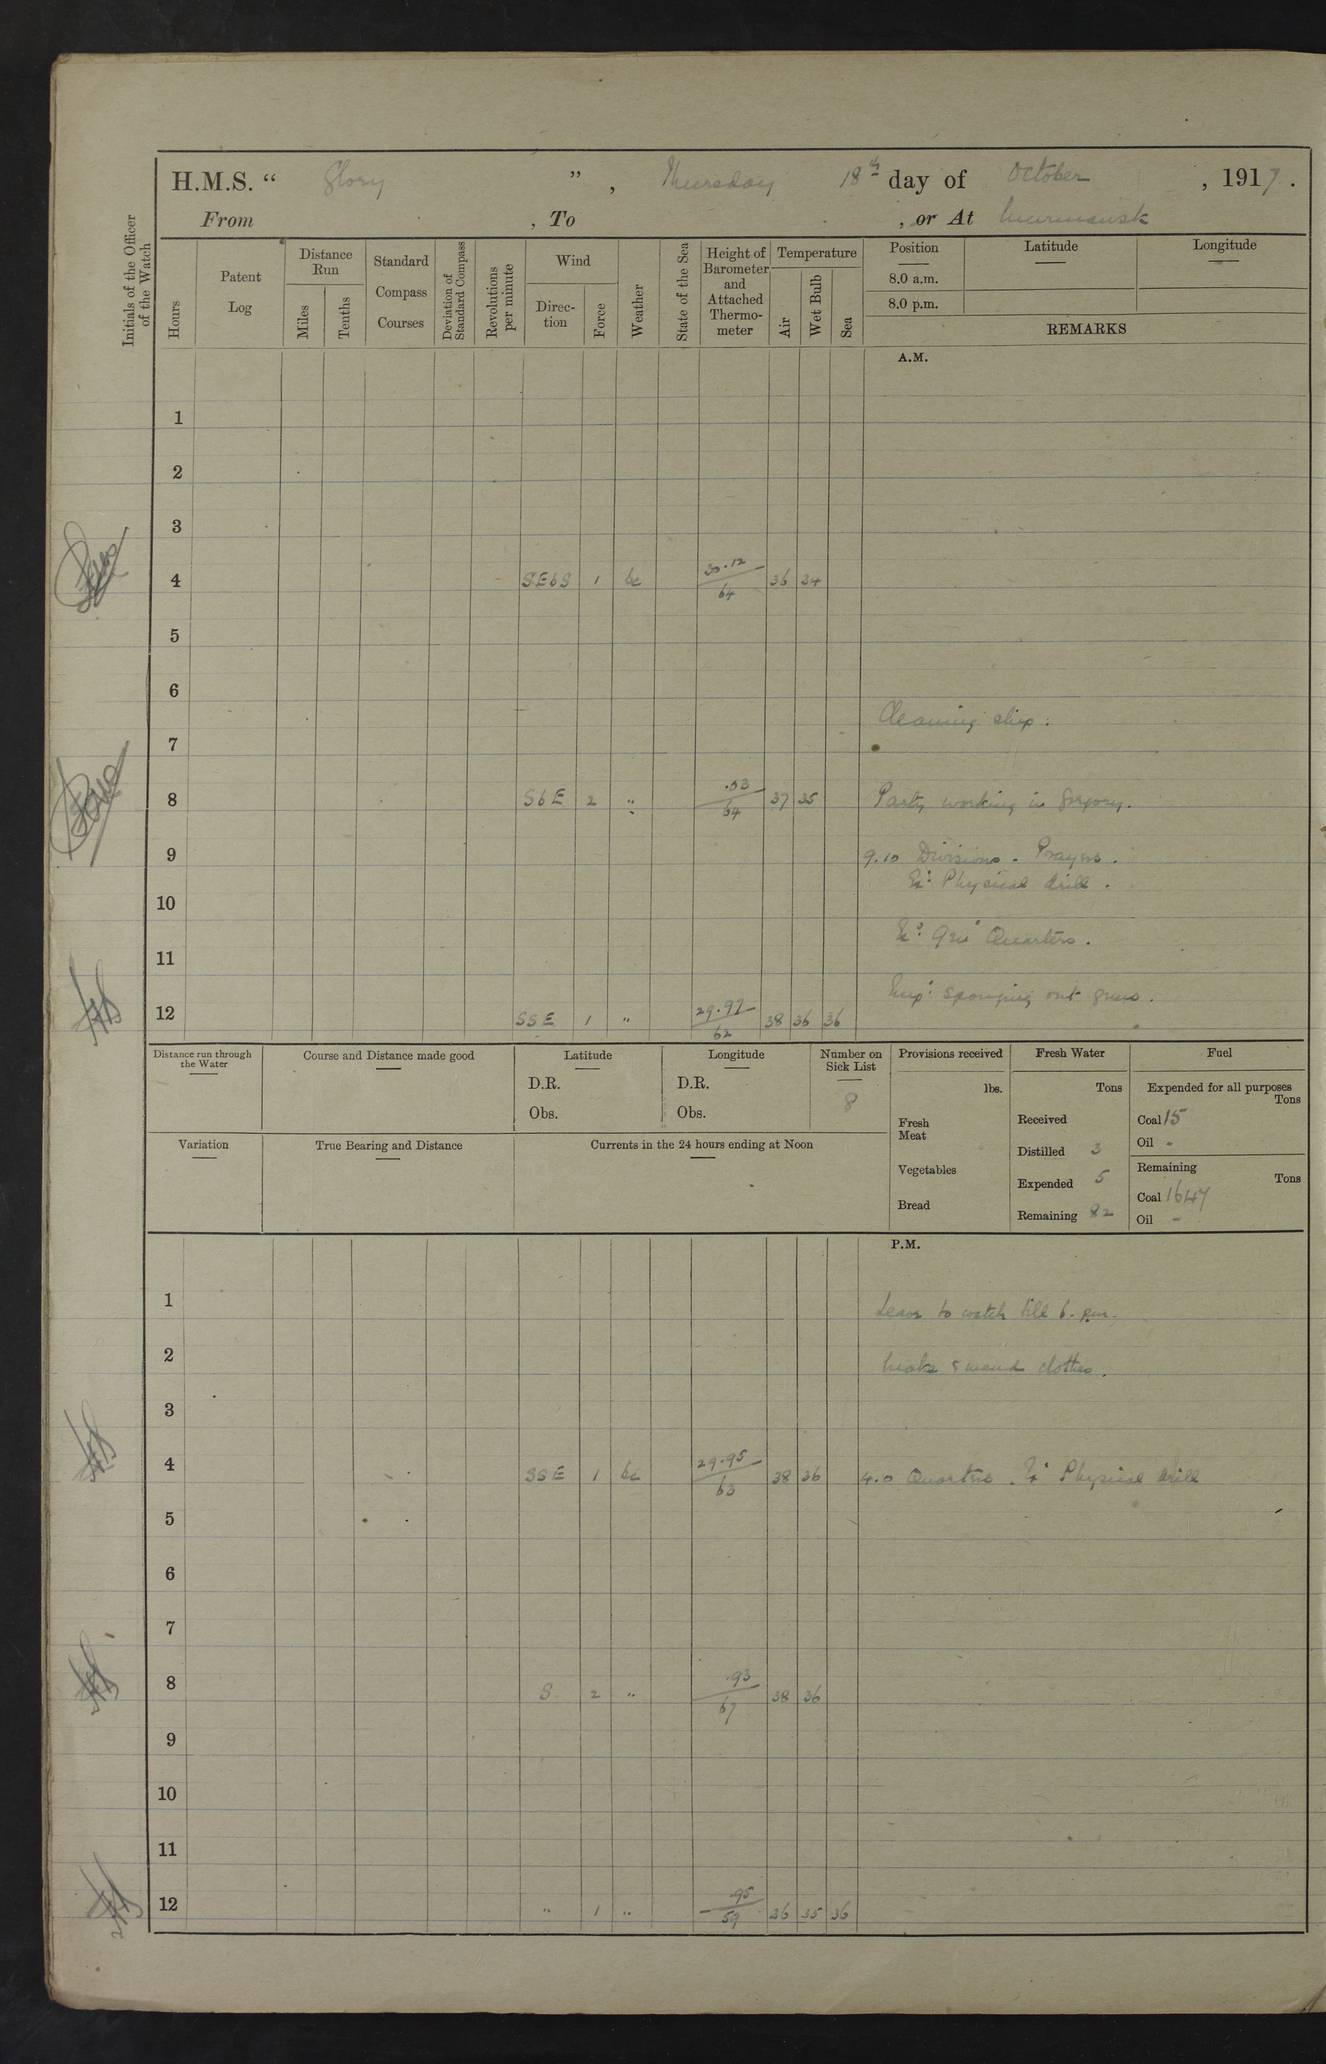 H.M.S. “ Glory ” , Thursday 18th day of October , 1917 .
From , To , or At Murmansk
Initials of the Officer of the Watch
Hours
Patent Log
Distance Run
Miles
Tenths
Standard Compass Courses
Deviation of Standard Compass
Revolutions per minute
Wind
Direc-tion
Force
Weather
State of the Sea
Height of Barometer and Attached Thermo-meter
Temperature
Air
Wet Bulb
Sea
Position
8.0 a.m.
8.0 p.m.
Latitude
Longitude
REMARKS
A.M.
1
2
3
4 SEbS 1 bc 30.12/64 36 34
5
6
Cleaning ship.
7
8 SbE 2 " .03/64 37 35 Party working in Gregory.
9 9.10 Divisions. Prayers.
Ex: Physical drill.
10
Ex: Qrs Quarters.
11
Emp: sponging out guns.
12 SSE 1 " 29.97/62 38 36 36
Distance run through the Water
Course and Distance made good
Latitude
D.R.
Obs.
Longitude
D.R.
Obs.
Number on Sick List
8
Provisions received
lbs.
Fresh Meat
Vegetables
Bread
Fresh Water
Tons
Received
Distilled 3
Expended 5
Remaining 82
Fuel
Expended for all purposes
Tons
Coal 15
Oil -
Remaining
Tons
Coal 1647
Oil -
Variation
True Bearing and Distance
Currents in the 24 hours ending at Noon
P.M.
1 Leave to watch till 6. p.m.
2 Make & mend clothes.
3
4 SSE 1 bc 29.95/63 38 36 4.0 Quarters. Ex: Physical drill
5
6
7
8 S 2 " .93/67 38 36
9
10
11
12 " 1 " .95/59 36 35 36